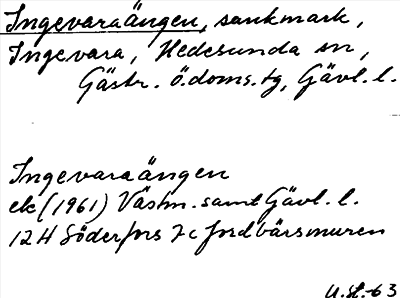 Ingevaraängen, sankmark,
Ingevara, Hedesunda sn,
Gästr. ö.doms.tg, Gävl. l.
Ingevaraängen
ek (1961) Västm. samt Gävl. l.
12H Söderfors 7c Jordbärsmuren
U.St.-63